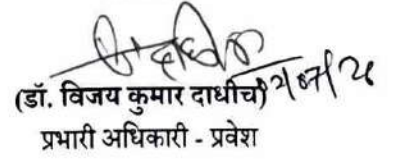 (डॉ. विजय कुमार दाधीच)
प्रभारी अधिकारी - प्रवेश